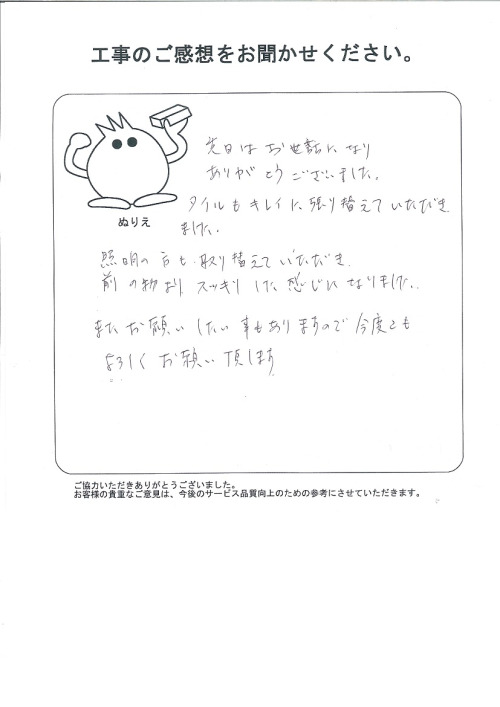 工事のご感想をお聞かせください。
先日はお世話になり
ありがとうございました。
ぬりえ
タイルもキレイに張り替えていただき
ました。
照明の方も取り替えていただき
前の物よりスッキリした感じになりました。
またお願いしたい事もありますので今度とも
よろしくお願い頂します
ご協力いただきありがとうございました。
お客様の貴重なご意見は、今後のサービス品質向上のための参考にさせていただきます。